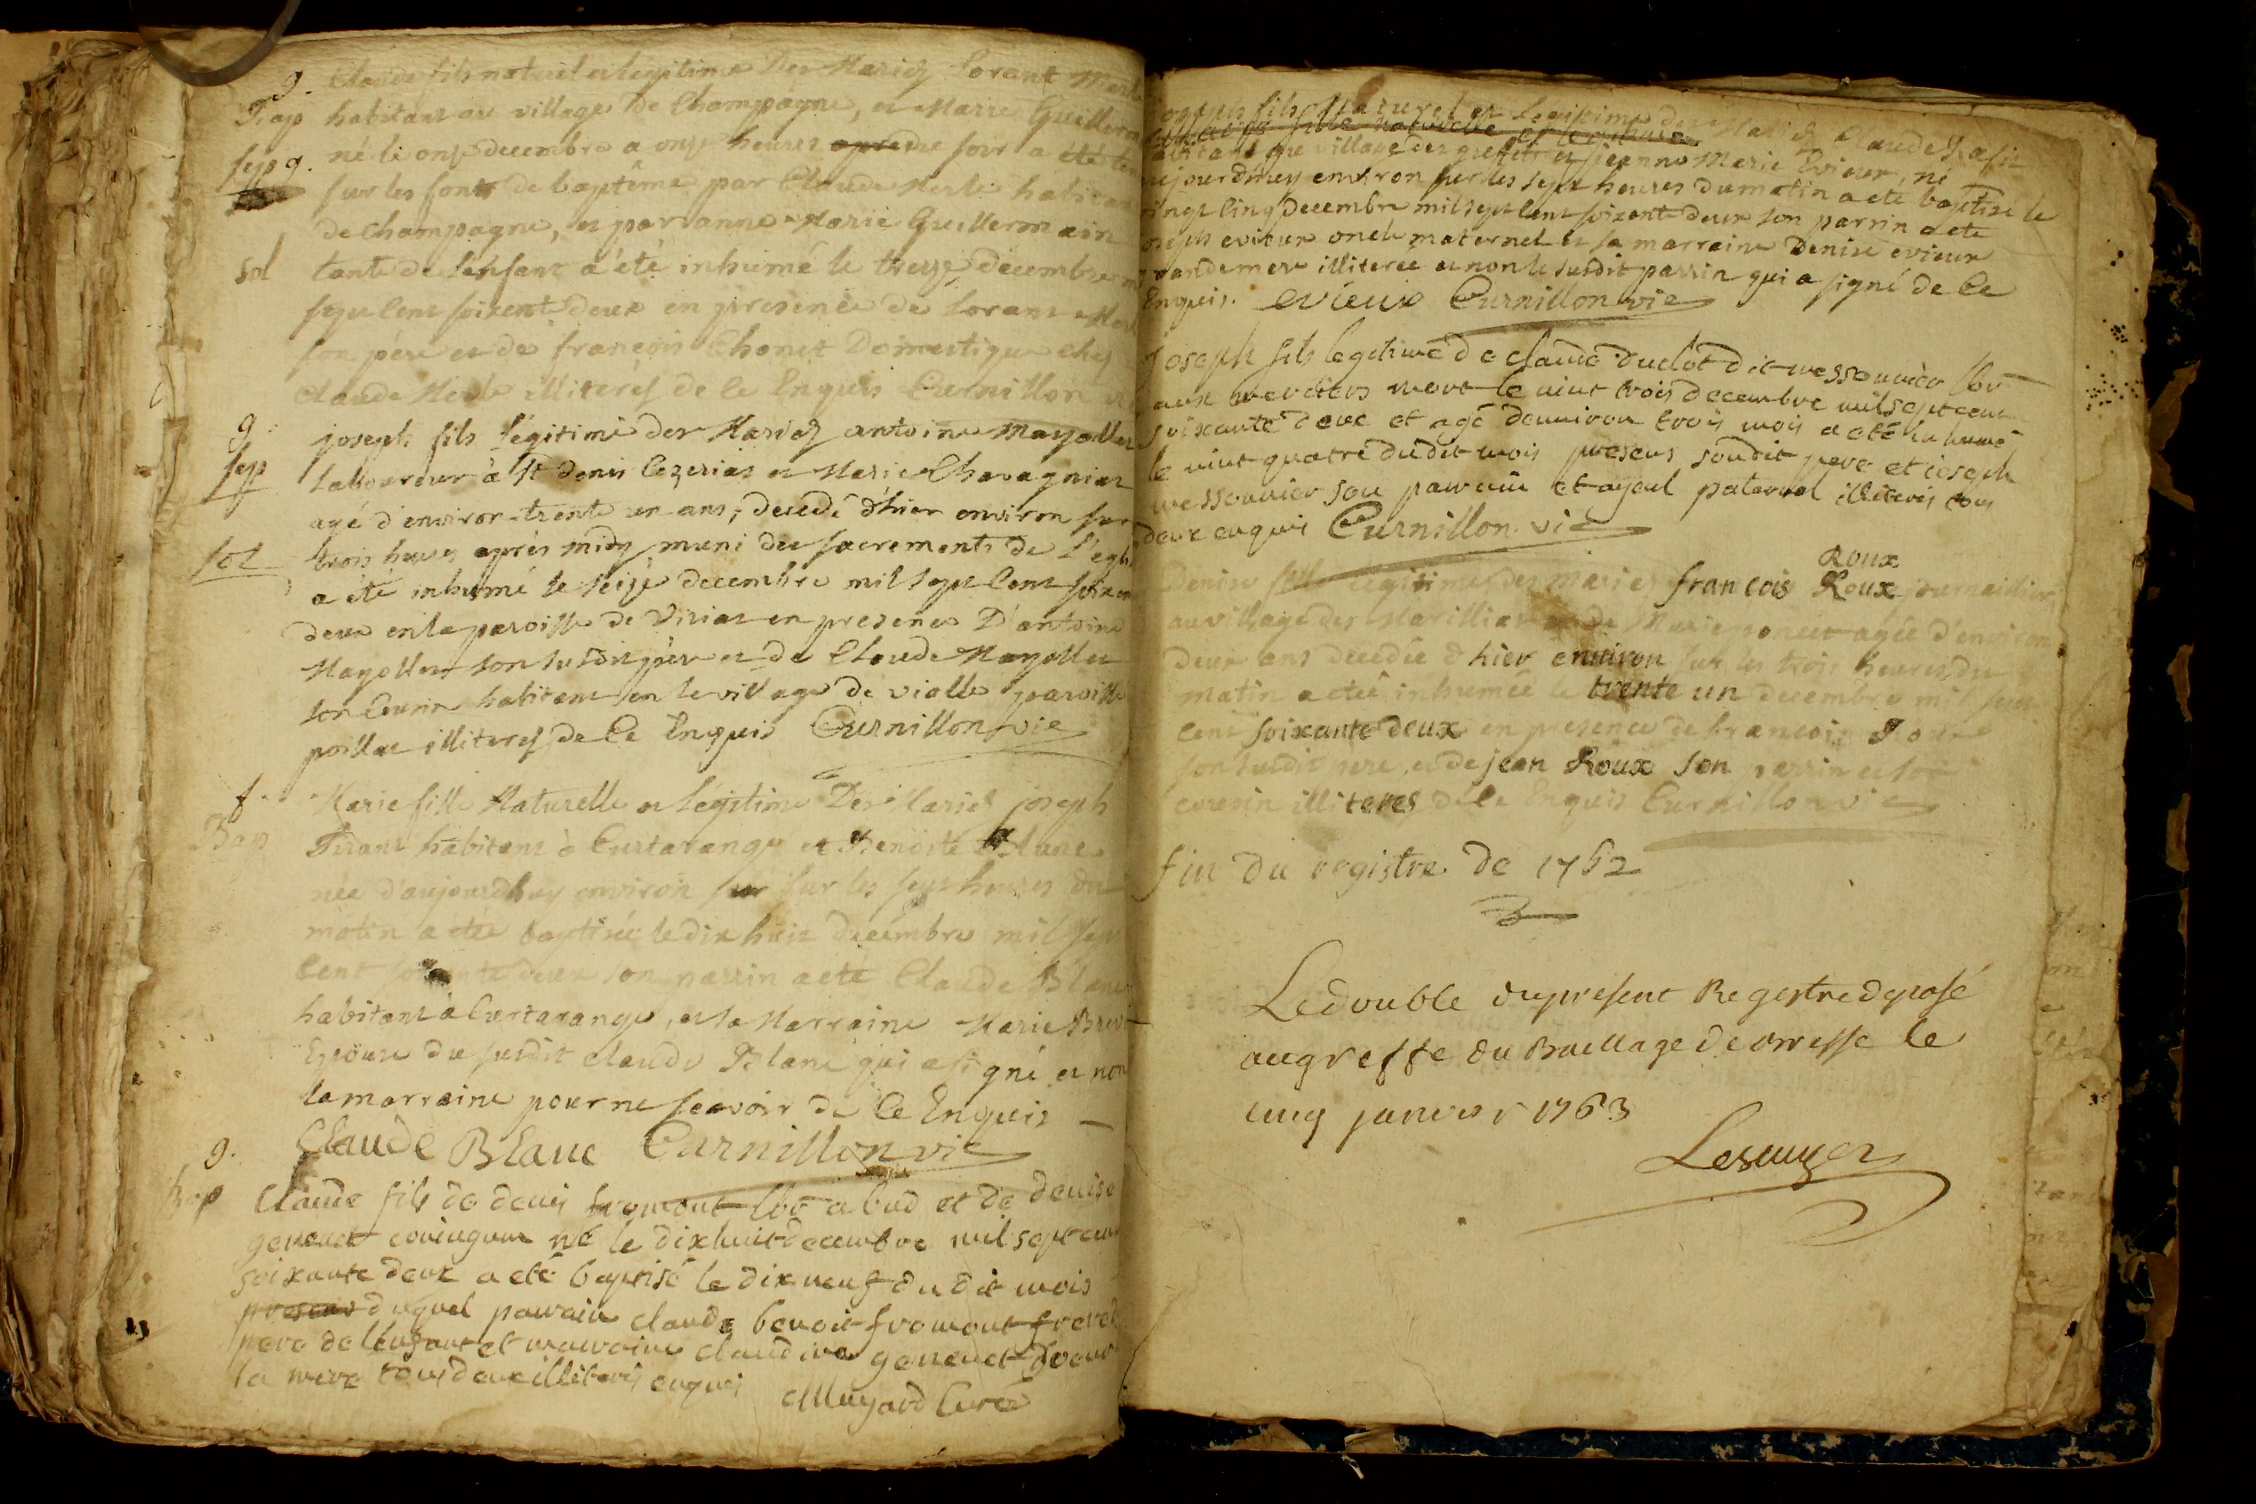 g.
Bap
sep g.
sol
Claude fils naturel et legitime Des Mariez Lorant Merle
habitant au village de Champagne, et Marie Guillerm
né le onze decembre a onze heures du soir a été
sur les fonts de baptême par Claude Merle habitan
de Champagne, et par anne Marie Guillermain
tante de l'enfant a été inhumé le treize decembre
sept cent soixent deux en presence de Lorant Mer
son père et de françois Chonet Domestique chez
Claude Merle illiterés de ce Enquis Curnillon
g.
sep
sol
joseph fils légitime des Mariez antoine Mayollet
Laboureur à St denis Cezeriat et Marie Chavagniat
agé d'environ trente un ans, decedé d'hier environ sur
trois heures après midy muni des sacrements de l'egl
a été inhumé le seize decembre mil sept cent soixen
deux en la paroisse de Viriat en presence D'antoine
Mayollet son susdit père et de Claude Mayollet
son Cousin habitant en le village de vialle paroisse
poillat illiteres de Ce Enquis Curnillon vic
f.
Bap
Marie fille Naturelle et Légitime Des Mariez joseph
Tirant habitant à Curtarange et Benoite Blanc
née d'aujourdhuy environ sur les sept heures du
matin a été baptisée le dix huit decembre mil sept
Cent soixante deux son parrin a eté Claude Blanc
habitant à Curtarange, et la Marraine Marie Brevet
Epouse du susdit Claude Blanc qui a signé et non
la marraine pour ne scavoir de Ce Enquis
Claude Blanc Curnillon vic
g.
Bap
Claude fils de denis fromont lbr a bud et de denise
genevet coniugum né le dixhuit decembre mil sept cen
soixante deux a eté baptisé le dix neuf du dit mois
presens duquel parrain claude benoit fromont frere d
pere de l'enfant et marraine claudine genevet soeur
la mere tous deux illiterés enquis Muyard Curé
joseph fils Naturel et legitime des Mariez Claude
fille naturelle et legitime
habitans au village des greffets et jeanne Marie Evieux, né
aujourdhuy environ sur les sept heures du matin a eté baptisé le
vingt cinq decembre mil sept cent soixante deux son parrin a eté
joseph evieux oncle maternel et sa marraine Denise evieux
grandemere illiteree et non le susdit parrin qui a signé de Ce
Enquis. evieux Curnillon vic
Joseph fils legitime de claude duclot dit messonnier lbr
aux mort le vint trois decembre mil sept cent
soixante deux et agé d'enuiron trois mois a eté inhumé
le vint quatre dudit mois presens soudit pere et ioseph
messonnier son parrain et ayeul paternel illiterés tous
deux enquis Curnillon vic
Roux
Denise fille legitime des mariez françois Roux journaillier
au village des Marilliat et de Marie poncet agée d'environ
deux ans decedée d'hier environ sur les trois heures du
matin a eté inhumée le trente un decembre mil sept
cent soixante deux en presence de francois Roux
son susdit pere, et de jean Roux son parrin et son
cousin illiteres de Ce Enquis Curnillon vic
fin du registre de 1762
Le double du present Registre deposé
au greffe du Bailliage de Bresse le
cinq janvier 1763